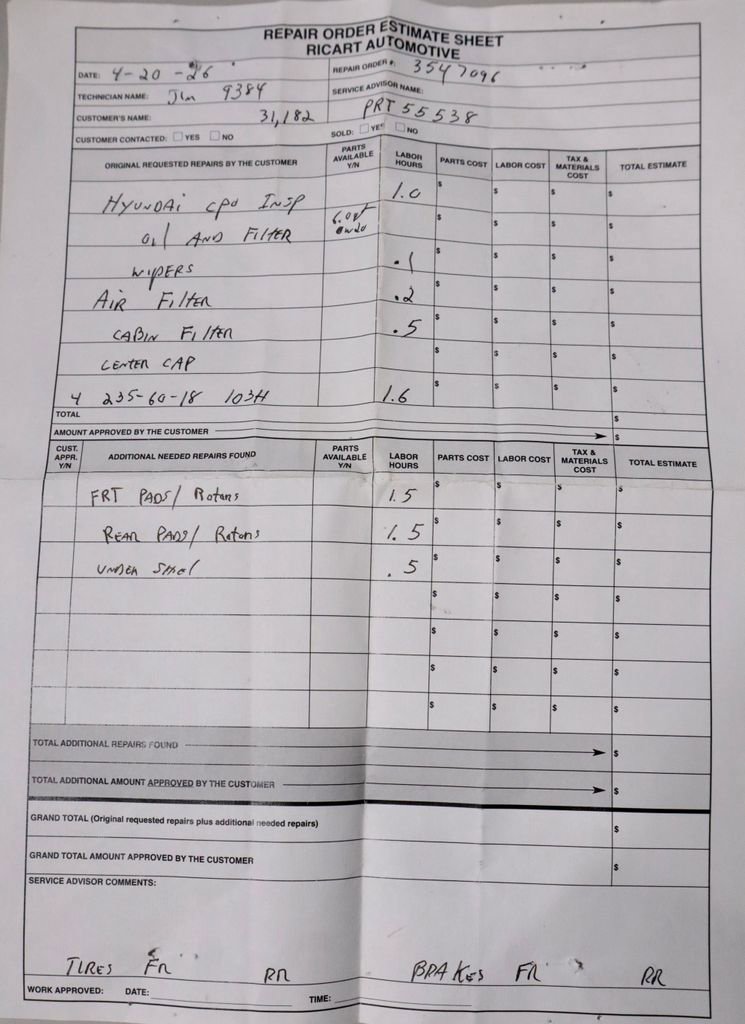 REPAIR ORDER ESTIMATE SHEET
RICART AUTOMOTIVE
DATE: 4-20-26
REPAIR ORDER #: 3547096
TECHNICIAN NAME: Jim 9384
SERVICE ADVISOR NAME:
CUSTOMER'S NAME: 31,182
PRT 55538
CUSTOMER CONTACTED: YES NO
SOLD: YES NO
ORIGINAL REQUESTED REPAIRS BY THE CUSTOMER PARTS AVAILABLE Y/N LABOR HOURS PARTS COST LABOR COST TAX & MATERIALS COST TOTAL ESTIMATE
HYUNDAI CPO INSP 1.0 $ $ $ $
OIL AND FILTER 6.0qt 0w20 $ $ $ $
WIPERS .1 $ $ $ $
AIR FILTER .2 $ $ $ $
CABIN FILTER .5 $ $ $ $
CENTER CAP $ $ $ $
4 235-60-18 103H 1.6 $ $ $ $
TOTAL $
AMOUNT APPROVED BY THE CUSTOMER $
CUST. APPR. Y/N ADDITIONAL NEEDED REPAIRS FOUND PARTS AVAILABLE Y/N LABOR HOURS PARTS COST LABOR COST TAX & MATERIALS COST TOTAL ESTIMATE
FRT PADS/ Rotors 1.5 $ $ $ $
REAR PADS/ Rotors 1.5 $ $ $ $
UNDER .5 $ $ $ $
$ $ $ $
$ $ $ $
$ $ $ $
$ $ $ $
TOTAL ADDITIONAL REPAIRS FOUND $
TOTAL ADDITIONAL AMOUNT APPROVED BY THE CUSTOMER $
GRAND TOTAL (Original requested repairs plus additional needed repairs) $
GRAND TOTAL AMOUNT APPROVED BY THE CUSTOMER $
SERVICE ADVISOR COMMENTS:
TIRES FR RR BRAKES FR RR
WORK APPROVED: DATE: TIME: